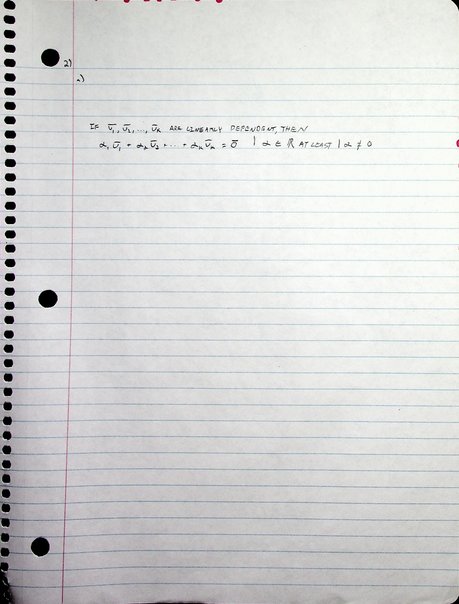 2)
a)
IF v̄₁, v̄₂, ..., v̄ₖ ARE LINEARLY DEPENDENT, THEN
α₁v̄₁ + α₂v̄₂ + ... + αₖv̄ₖ = 0̄ | α ∈ ℝ AT LEAST 1 α ≠ 0